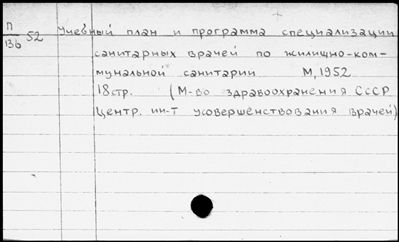 П 52 Учебный план и программа специализации
136 санитарных врачей по жилищно-ком-
мунальной санитарии М, 1952
18 стр. (М-во здравоохранения СССР
Центр. ин-т усовершенствования врачей)